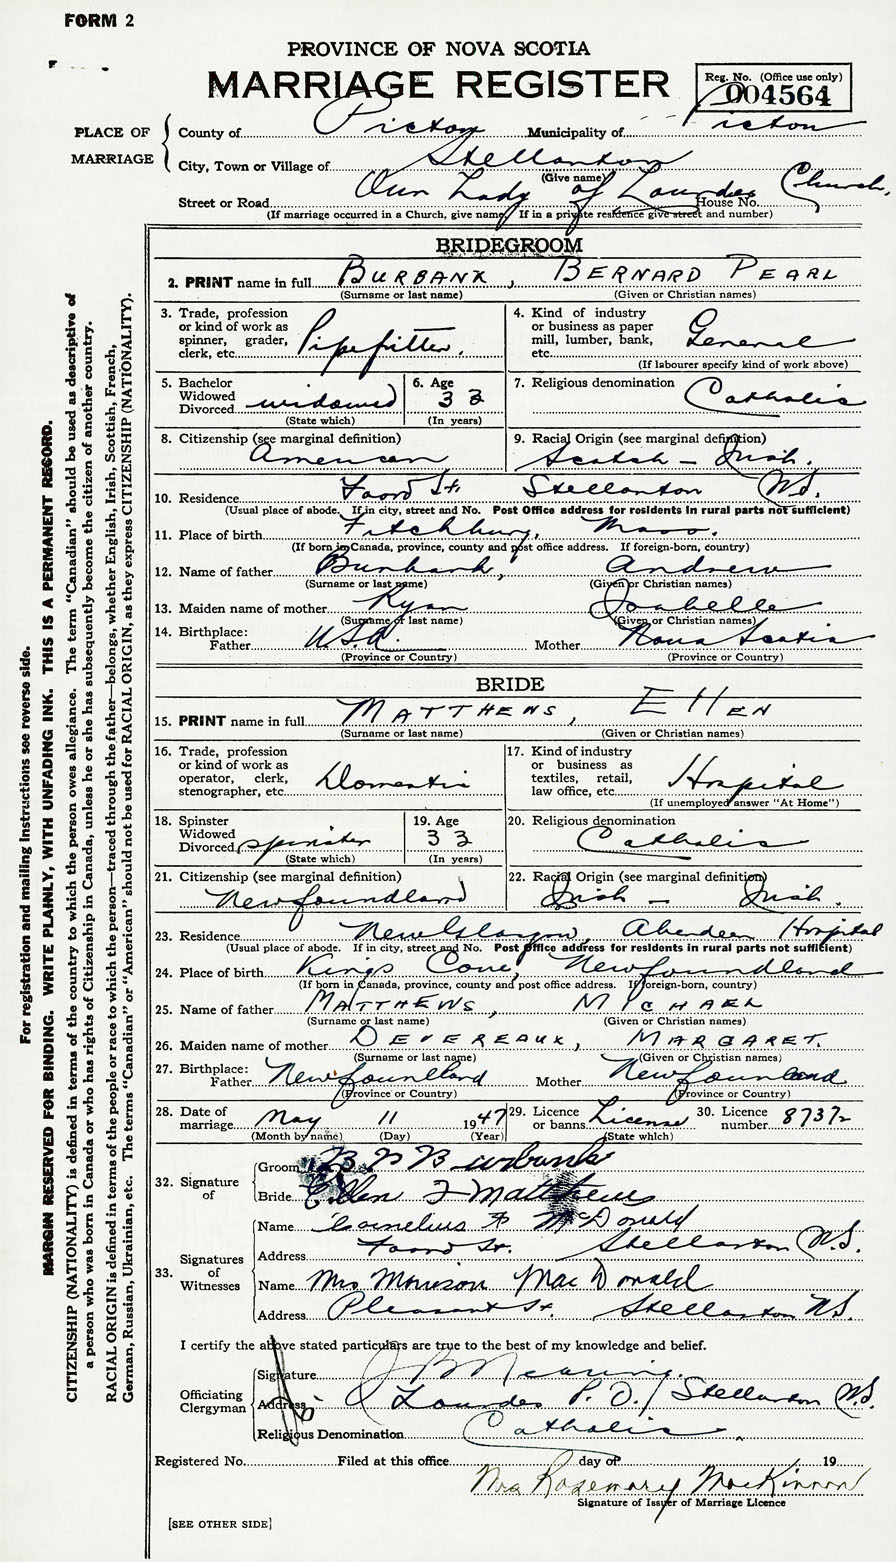 FORM 2
PROVINCE OF NOVA SCOTIA
MARRIAGE REGISTER
Reg. No. (Office use only)
004564
PLACE OF MARRIAGE
County of Pictou Municipality of Pictou
City, Town or Village of Stellarton
(Give name)
Street or Road Our Lady of Lourdes Church, House No.
(If marriage occurred in a Church, give name. If in a private residence give street and number)
BRIDEGROOM
2. PRINT name in full BURBANK, BERNARD PEARL
(Surname or last name) (Given or Christian names)
3. Trade, profession or kind of work as spinner, grader, clerk, etc. Pipefitter.
4. Kind of industry or business as paper mill, lumber, bank, etc. General
(If labourer specify kind of work above)
5. Bachelor Widowed Divorced widowed
(State which)
6. Age 33
(In years)
7. Religious denomination Catholic
8. Citizenship (see marginal definition)
American
9. Racial Origin (see marginal definition)
Scotch - Irish.
10. Residence Foord St. Stellarton N.S.
(Usual place of abode. If in city, street and No. Post Office address for residents in rural parts not sufficient)
11. Place of birth Fitchburg, Mass.
(If born in Canada, province, county and post office address. If foreign-born, country)
12. Name of father Burbank, Andrew
(Surname or last name) (Given or Christian names)
13. Maiden name of mother Ryan Isabelle
(Surname or last name) (Given or Christian names)
14. Birthplace: Father U.S.A. Mother Nova Scotia
(Province or Country) (Province or Country)
BRIDE
15. PRINT name in full MATTHEWS, EllEN
(Surname or last name) (Given or Christian names)
16. Trade, profession or kind of work as operator, clerk, stenographer, etc. Domestic
17. Kind of industry or business as textiles, retail, law office, etc. Hospital
(If unemployed answer "At Home")
18. Spinster Widowed Divorced spinster
(State which)
19. Age 33
(In years)
20. Religious denomination
Catholic
21. Citizenship (see marginal definition)
Newfoundland
22. Racial Origin (see marginal definition)
Irish - Irish.
23. Residence New Glasgow, Aberdeen Hospital
(Usual place of abode. If in city, street and No. Post Office address for residents in rural parts not sufficient)
24. Place of birth Kings Cove, Newfoundland
(If born in Canada, province, county and post office address. If foreign-born, country)
25. Name of father MATTHEWS, MICHAEL
(Surname or last name) (Given or Christian names)
26. Maiden name of mother DEVEREAUX, MARGARET.
(Surname or last name) (Given or Christian names)
27. Birthplace: Father Newfoundland Mother Newfoundland
(Province or Country) (Province or Country)
28. Date of marriage May 11 1947
(Month by name) (Day) (Year)
29. Licence or banns License
(State which)
30. Licence number 87372
32. Signature of
Groom B P Burbank
Bride Ellen F Matthews
33. Signatures of Witnesses
Name Cornelius F McDonald
Address Foord St. Stellarton N.S.
Name Mrs Morrison MacDonald
Address Pleasant St. Stellarton N.S.
I certify the above stated particulars are true to the best of my knowledge and belief.
Officiating Clergyman
Signature J B
Address Lourdes P.O. / Stellarton N.S.
Religious Denomination Catholic
Registered No. Filed at this office day of 19
Mrs Rosemary MacKinnon
Signature of Issuer of Marriage Licence
[SEE OTHER SIDE]
For registration and mailing instructions see reverse side.
MARGIN RESERVED FOR BINDING. WRITE PLAINLY, WITH UNFADING INK. THIS IS A PERMANENT RECORD.
CITIZENSHIP (NATIONALITY) is defined in terms of the country to which the person owes allegiance. The term "Canadian" should be used as descriptive of
a person who was born in Canada or who has rights of Citizenship in Canada, unless he or she has subsequently become the citizen of another country.
RACIAL ORIGIN is defined in terms of the people or race to which the person—traced through the father—belongs, whether English, Irish, Scottish, French,
German, Russian, Ukrainian, etc. The terms "Canadian" or "American" should not be used for RACIAL ORIGIN, as they express CITIZENSHIP (NATIONALITY).